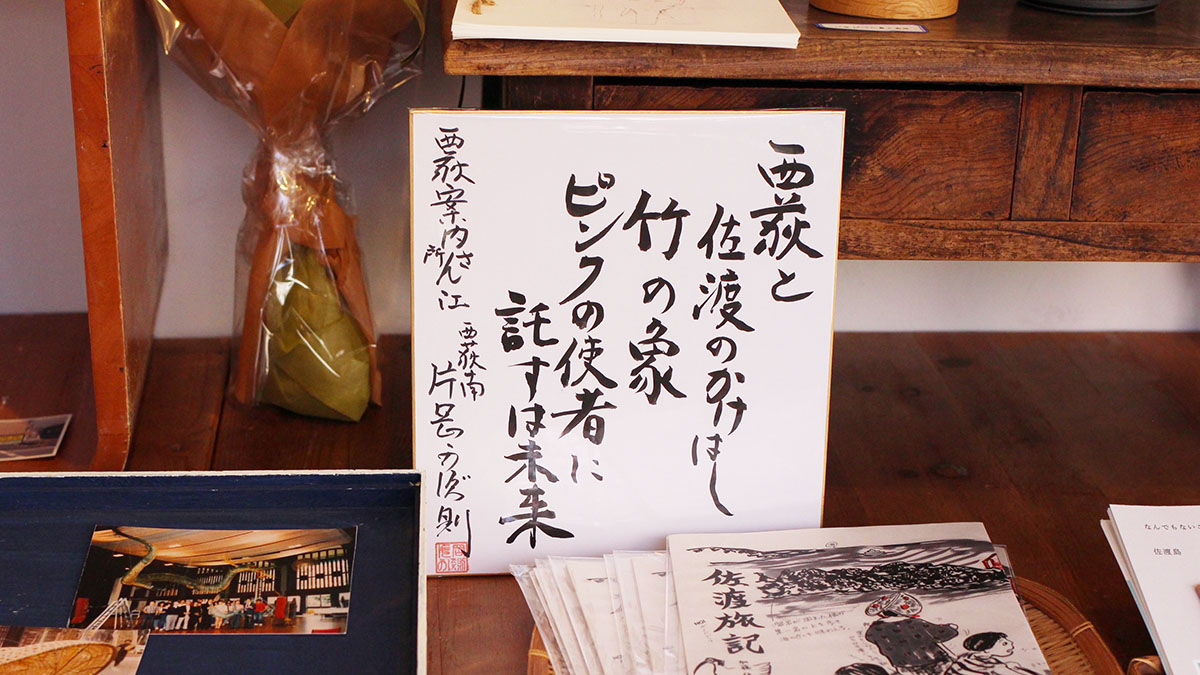 西荻と
佐渡のかけはし
竹の象
ピンクの使者に
託すは未来
西荻案内所さん江
西荻南
片岡
則
佐渡旅記
なんでもない
佐渡島